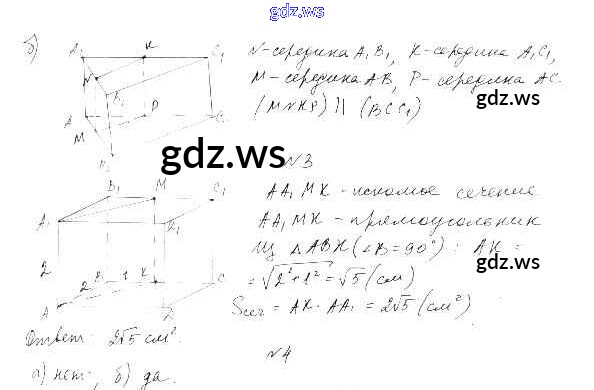 gdz.ws
б)
A₁ K C₁
N B₁
A P C
M
N-середина A₁B₁, K-середина A₁C₁,
M-середина AB, P-середина AC.
(MNKP) || (BCC₁)
gdz.ws
gdz.ws
N3
B₁ M C₁
A₁ D₁
2 B 1 K C
A 2 D
AA₁MK - искомое сечение
AA₁MK - прямоугольник
Из △ABK (∠B=90°): AK =
= √2²+1² = √5 (см)
gdz.ws
Sсеч = AK · AA₁ = 2√5 (см²)
Ответ: 2√5 см².
N4
а) нет, б) да.
gdz.ws